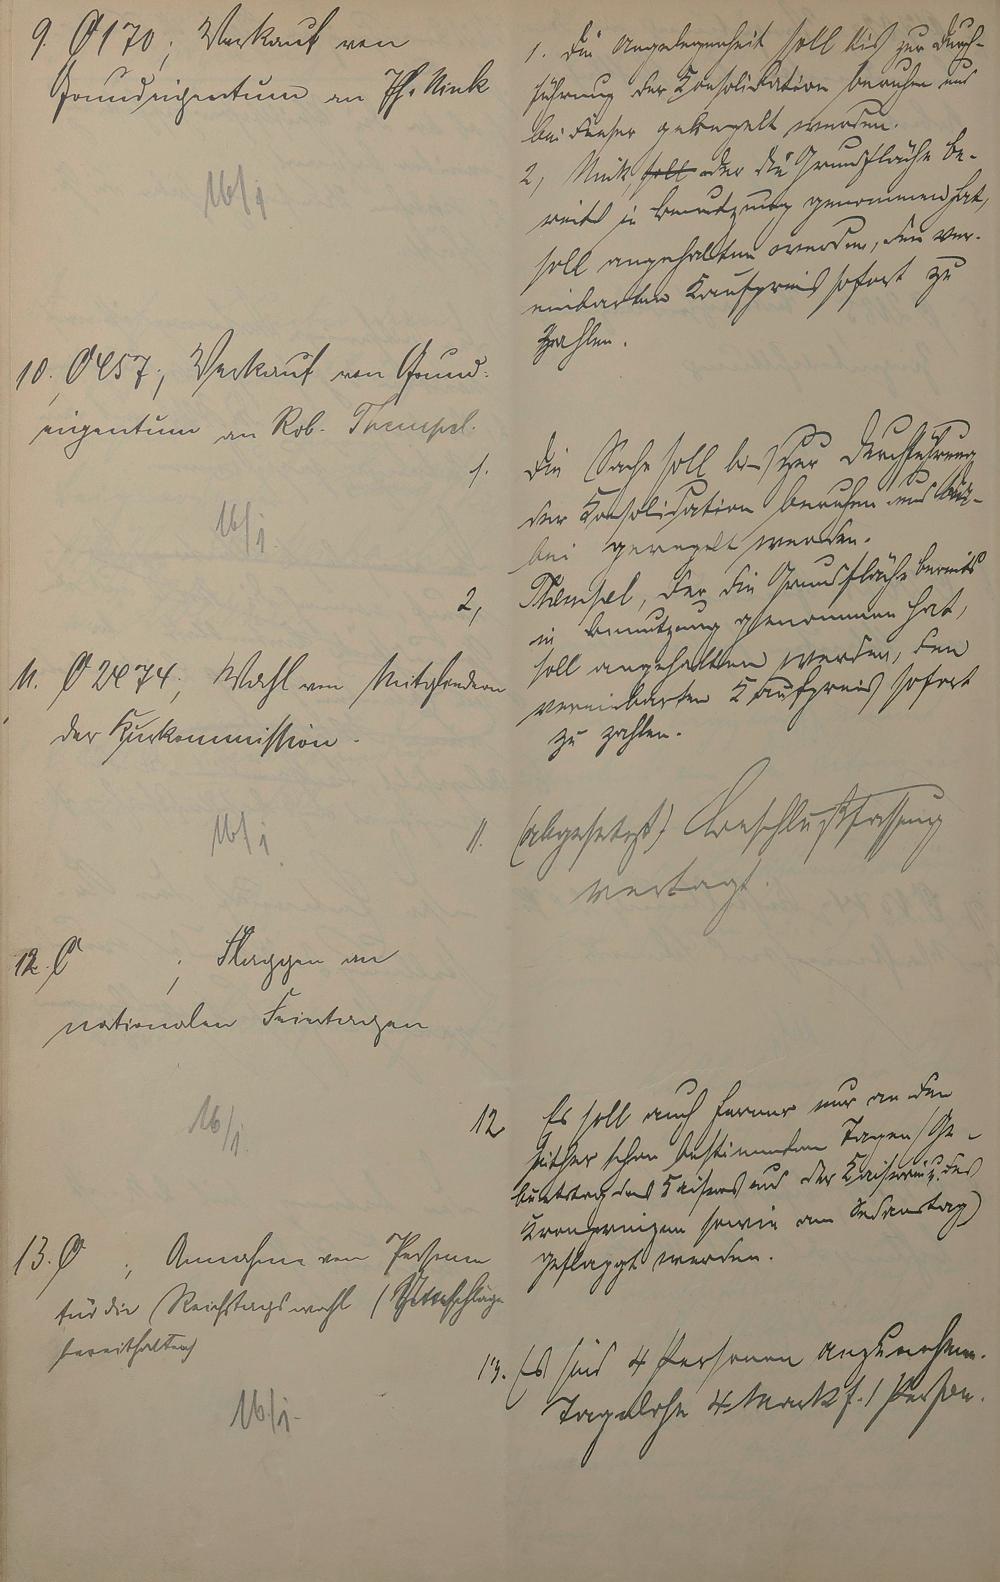 9. O 170; Verkauf von
Grundeigentum an Ph. Mink
16/1
1. Die Angelegenheit soll bis zur Durch-
führung der Konsolidation beruhen und
bei dieser geregelt werden.
2, Mink soll der die Grundfläche be-
reits in Benutzung genommen hat,
soll angehalten werden, den ver-
einbarten Kaufpreis sofort zu
zahlen.
10. O 457; Verkauf von Grund-
eigentum an Rob. Thempel.
16/1
1. Die Sache soll bis zur Durchführung
der Konsolidation beruhen und
bei geregelt werden.
2, Thempel, der die Grundfläche bereits
in Benutzung genommen hat,
soll angehalten werden, den
vereinbarten Kaufpreis sofort
zu zahlen.
11. O 2474; Wahl von Mitgliedern
der Kurkommission.
16/1
11. (abgesetzt) Beschlußfassung
vertagt.
12. O ; Flaggen an
nationalen Feiertagen
16/1
12 Es soll auch ferner nur an den
seither schon bestimmten Tagen (Ge-
burtstag des Kaisers und der Kaiserin u. des
Kronprinzen sowie am Sedanstag)
geflaggt werden.
13. O ; Annahme von Personen
für die Reichstagswahl (
bereithalten)
16/1.
13. Es sind 4 Personen anzunehmen.
Tagelohn 4 Mark f. 1 Person.